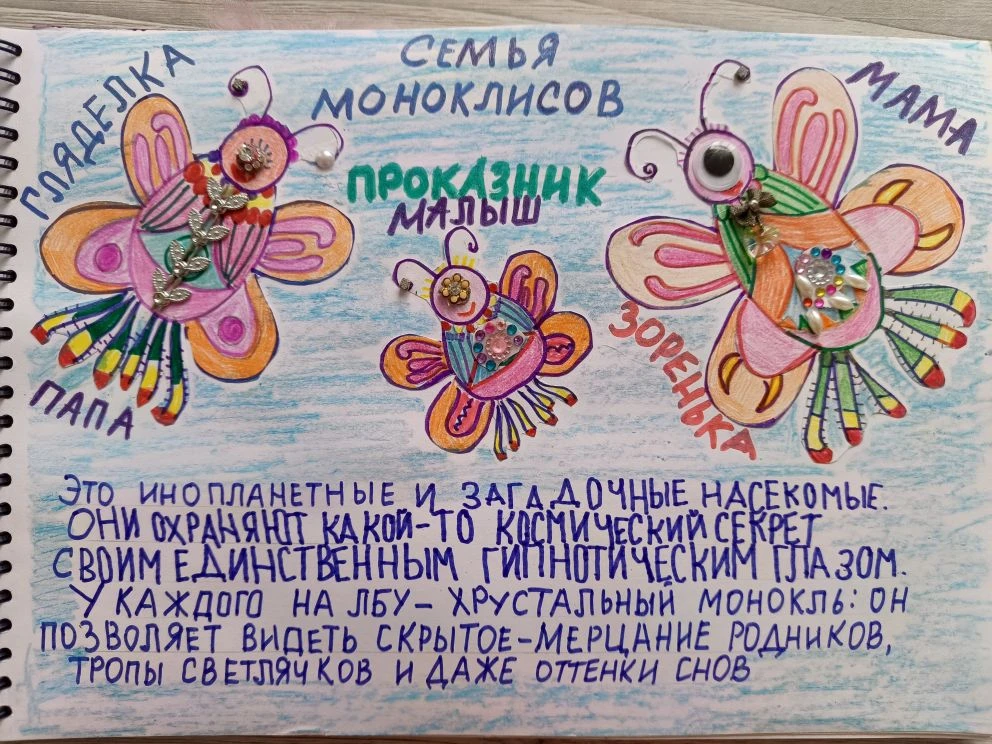 СЕМЬЯ
МОНОКЛИСОВ
ГЛЯДЕЛКА
ПАПА
ПРОКАЗНИК
МАЛЫШ
МАМА
ЗОРЕНЬКА
ЭТО ИНОПЛАНЕТНЫЕ И ЗАГАДОЧНЫЕ НАСЕКОМЫЕ.
ОНИ ОХРАНЯЮТ КАКОЙ-ТО КОСМИЧЕСКИЙ СЕКРЕТ
СВОИМ ЕДИНСТВЕННЫМ ГИПНОТИЧЕСКИМ ГЛАЗОМ.
У КАЖДОГО НА ЛБУ – ХРУСТАЛЬНЫЙ МОНОКЛЬ: ОН
ПОЗВОЛЯЕТ ВИДЕТЬ СКРЫТОЕ – МЕРЦАНИЕ РОДНИКОВ,
ТРОПЫ СВЕТЛЯЧКОВ И ДАЖЕ ОТТЕНКИ СНОВ